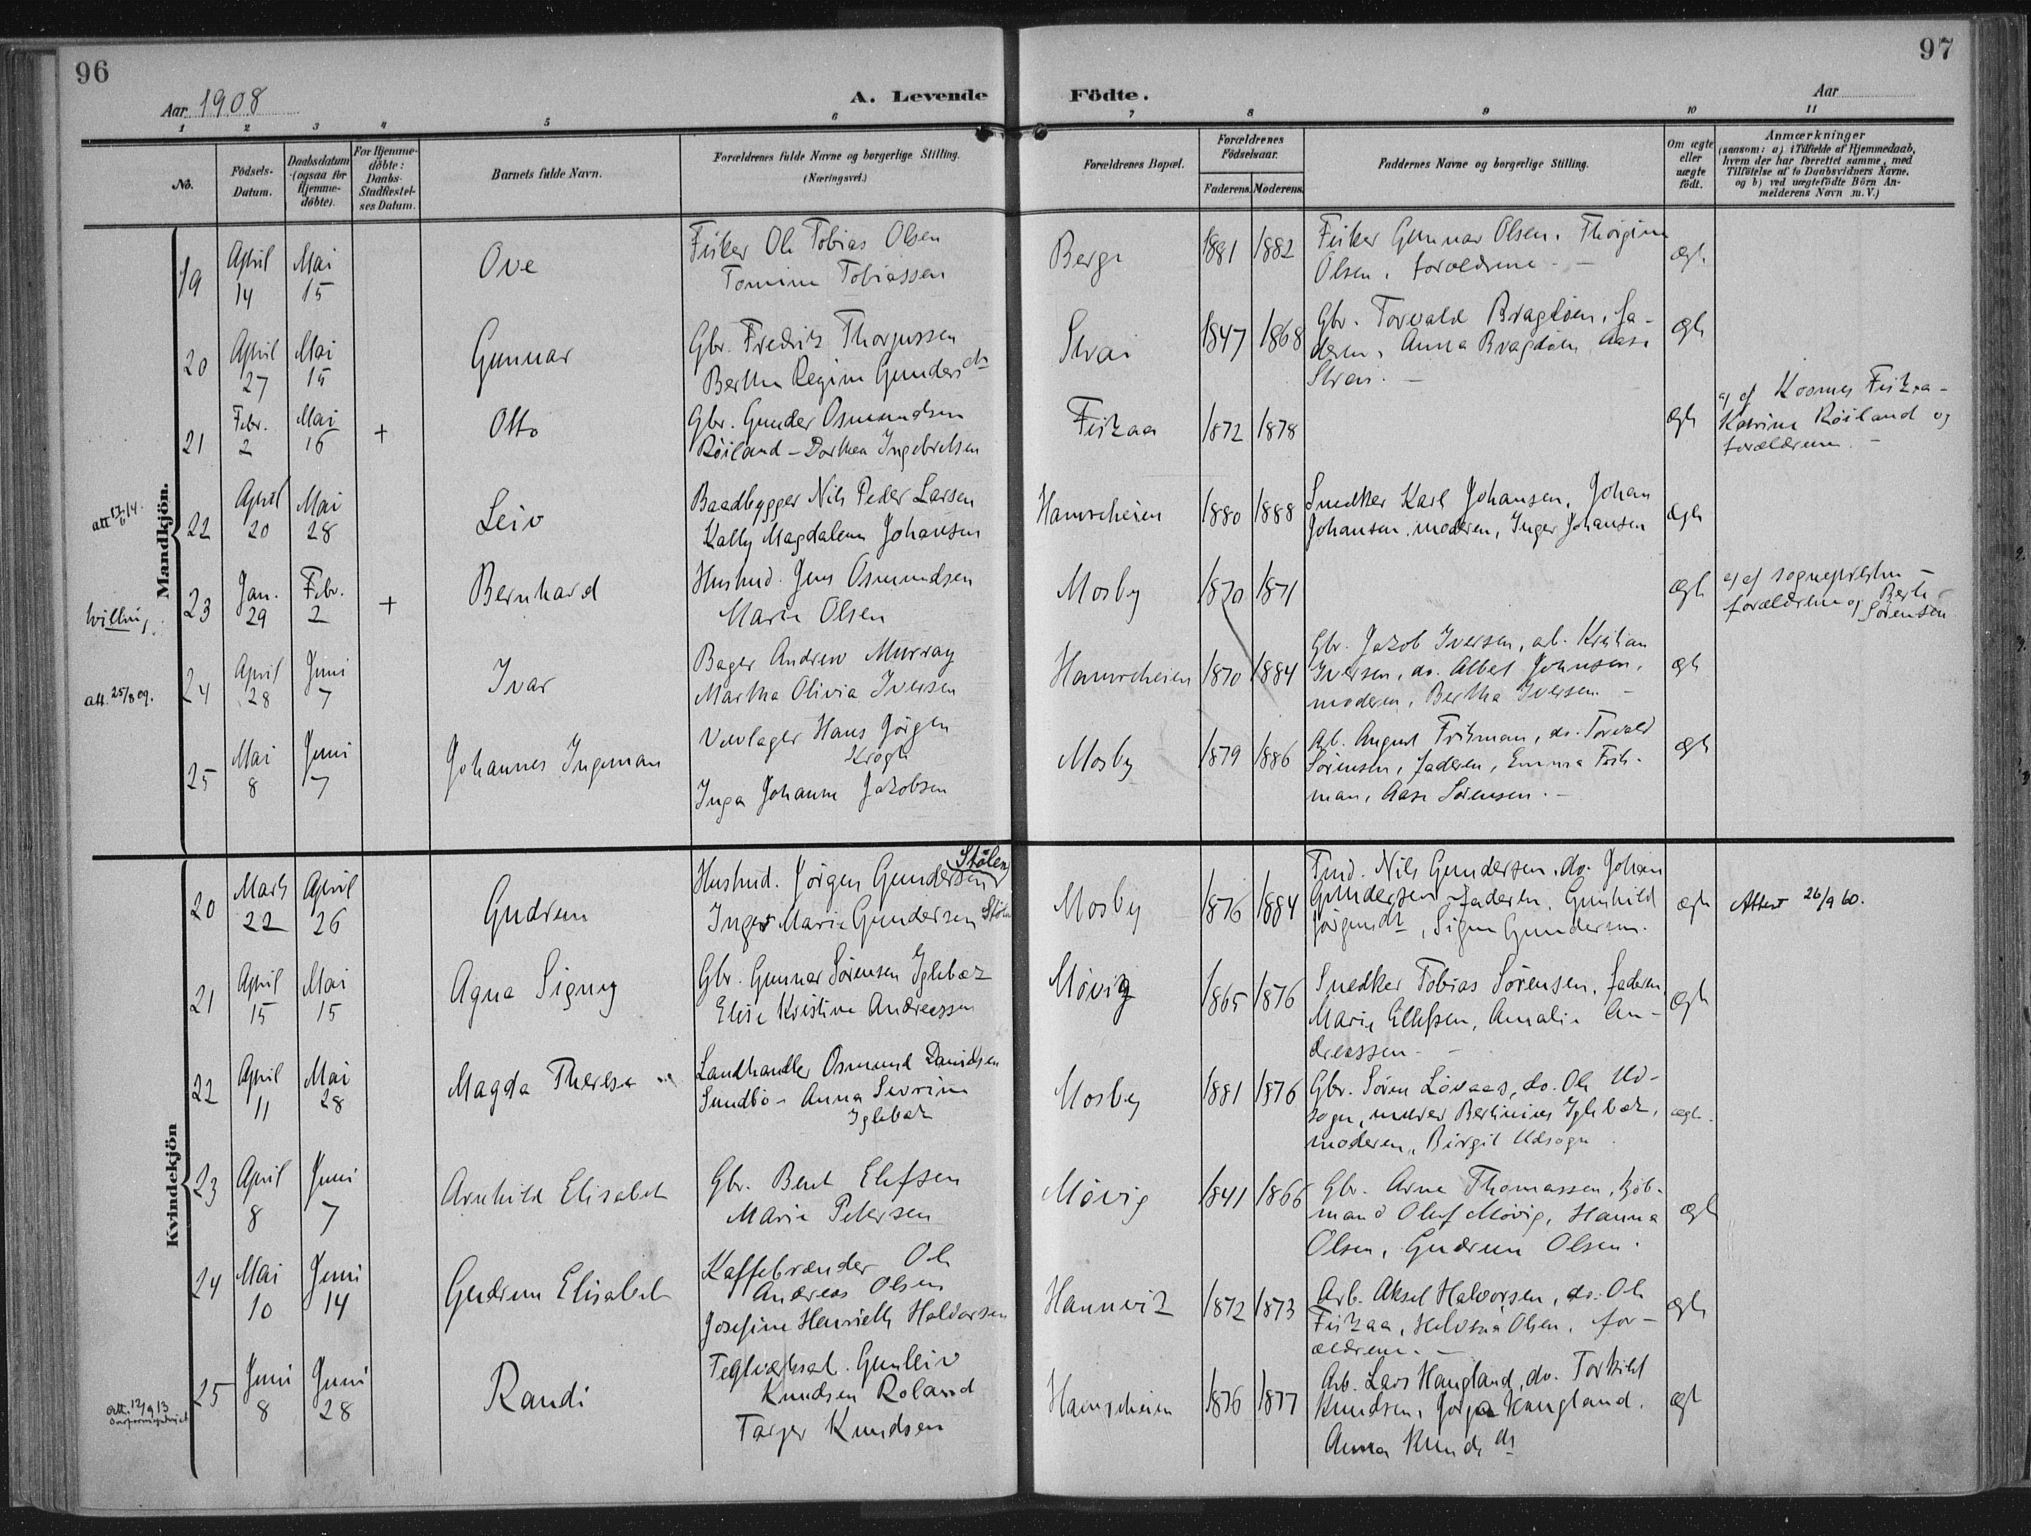 96
97
Aar 1908
A. Levende
Födte.
Aar
1 2 3 4 5 6 7 8 9 10 11
No.
Födsels-Datum.
Daabsdatum (ogsaa for Hjemme-döbte).
For Hjemme-döbte: Daabs-Stadfæstel-ses Datum.
Barnets fulde Navn.
Forældrenes fulde Navne og borgerlige Stilling. (Næringsvei.)
Forældrenes Bopæl.
Forældrenes Födselsaar.
Faderens. Moderens.
Faddernes Navne og borgerlige Stilling.
Om ægte eller uægte födt.
Anmærkninger
(saasom: a) i Tilfælde af Hjemmedaab,
hvem der har forrettet samme, med
Tilföielse af to Daabsvidners Navne,
og b) ved uægtefödte Börn An-
melderens Navn m. V.)
Mandkjön.
19 April 14 Mai 15 Ove
Fisker Ole Tobias Olsen
Tomine Tobiassen
Berge 1881 1882
Fisker Gunnar Olsen, Thorgine
Olsen, forældrene. —
ægte
20 April 27 Mai 15 Gunnar
Gbr. Fredrik Thorgussen
Berthe Regine Gundersdtr
Strai 1847 1868
Gbr. Torvald Bragdøen, fa-
deren, Anna Bragdøen, Aase
Strai. —
ægte
21 Febr. 2 Mai 16 + Otto
Gbr. Gunder Osmundsen
Röiland – Dorthea Ingebretsen
Fiskaa 1872 1878
ægte
a) af Kosmes Fiskaa –
Katrine Röiland og
forældrene. —
att 17/6 14.
22 April 20 Mai 28 Leiv
Baadbygger Nils Peder Larsen
Kally Magdalene Johansen
Hamreheien 1880 1888
Snedker Karl Johansen, Johan
Johansen, moderen, Inger Johansen
ægte
23 Jan. 29 Febr. 2 + Bernhard
Husmd. Jens Osmundsen
Marie Olsen
Mosby 1870 1871
ægte
a) af sognepresten –
forældrene og Berthe
Sörensen
att. 25/8 09.
24 April 28 Juni 7 Ivar
Bager Andrew Murray
Martha Olivia Iversen
Hamreheien 1870 1884
Gbr. Jakob Iversen, ab. Kristian
Iversen, do. Albert Johnsen,
moderen, Bertha Iversen. —
ægte
25 Mai 8 Juni 7 Johannes Ingeman
Vævlager Hans Jörgen
Krogh
Inga Johanne Jakobsen
Mosby 1879 1886
Arb. August Frihman, do. Torvald
Sörensen, faderen, Emma Frih-
man, Aase Sörensen. —
ægte
Kvindekjön
20 Marts 22 April 26 Gudrun
Husmd. Jörgen Gundersen Stölen
Inger Marie Gundersen Stölen
Mosby 1876 1884
Tmd. Nils Gundersen, do. Johan
Gundersen, faderen, Gunhild
Jörgensdtr, Signe Gundersen.
ægte
Attest 26/9 60.
21 April 15 Mai 15 Agna Signy
Gbr. Gunnar Sörensen Iglebæk
Elise Kristine Andreassen
Mövig 1865 1876
Snedker Tobias Sörensen, faderen,
Marie Ellefsen, Amalie An-
dreassen. —
ægte
22 April 11 Mai 28 Magda Therese
Landhandler Osmund Davidsen
Sundbö – Anna Severine
Iglebæk
Mosby 1881 1876
Gbr. Sören Lövaas, do. Ole Ud-
sogn, murer Bertinius Iglebæk,
moderen, Birgit Udsogn.
ægte.
23 April 8 Juni 7 Arnhild Elisabet
Gbr. Bent Elefsen
Marie Petersen
Mövig 1841 1866
Gbr. Arne Thomassen, kjöb-
mand Oluf Mövig, Hanna
Olsen, Gudrun Olsen.
ægte
24 Mai 10 Juni 14 Gudrun Elisabet
Kaffebrænder Ole
Andreas Olsen
Josefine Henriette Halvorsen
Hannevik 1872 1873
Arb. Aksel Halvorsen, do. Ole
Fiskaa, Helvina Olsen, for-
ældrene. —
ægte
att. 12/9 13
25 Juni 8 Juni 28 Randi
Teglværksarb. Gunleiv
Knudsen Roland
Tarjer Knudsen
Hamreheien 1876 1877
Arb. Lars Haugland, do. Torkild
Knudsen, Haugland,
Anna Knudsdtr
ægte